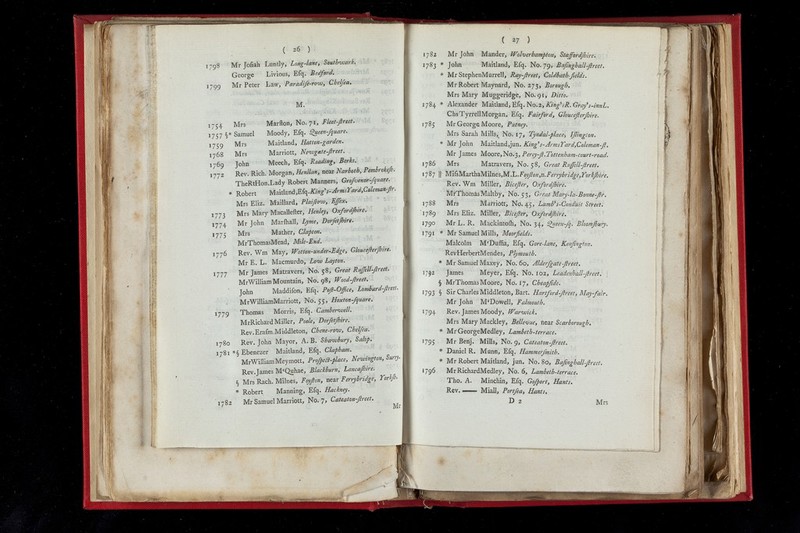 ( 26 )
1798 Mr Joſiah Lently, Long-lane, Southwark.
George Livious, Eſq. Bedford.
1799 Mr Peter Law, Paradiſe-row, Chelſea.
M.
1754 Mrs Marſton, No. 71, Fleet-ſtreet.
1757 §* Samuel Moody, Eſq. Queen-ſquare.
1759 Mrs Maitland, Hatton-garden.
1768 Mrs Marriott, Newgate-ſtreet.
1769 John Meech, Eſq. Reading, Berks.
1772 Rev. Rich. Morgan, Henllan, near Narboth, Pembrokeſh.
TheRtHon.Lady Robert Manners, Groſvenor-ſquare.
* Robert Maitland,Eſq.King's-ArmsYard,Coleman-ſtr.
Mrs Eliz. Maillard, Plaiſtow, Eſſex.
1773 Mrs Mary Macalleſter, Henley, Oxfordſhire.
1774 Mr John Marſhall, Lyme, Dorſetſhire.
1775 Mrs Mather, Clapton.
MrThomasMead, Mile-End.
1776 Rev. Wm May, Wotton-under-Edge, Gloceſterſhire.
Mr E. L. Macmurdo, Low Layton.
1777 Mr James Matravers, No. 58, Great Ruſſell-ſtreet.
MrWilliam Mountain, No. 98, Wood-ſtreet.
John Maddiſon, Eſq. Poſt-Office, Lombard-ſtreet.
MrWilliamMarriott, No. 55, Hoxton-ſquare.
1779 Thomas Morris, Eſq. Camberwell.
MrRichard Miller, Poole, Dorſetſhire.
Rev.Eraſm.Middleton, Chene-row, Chelſea.
1780 Rev. John Mayor, A. B. Shawbury, Salop.
1781 *§ Ebenezer Maitland, Eſq. Clapham.
MrWilliam Meymott, Proſpect-place, Newington, Surry.
Rev. James MᶜQuhae, Blackburn, Lancaſhire.
§ Mrs Rach. Milnes, Fryſton, near Ferrybridge, Yorkſh.
* Robert Manning, Eſq. Hackney.
1782 Mr Samuel Marriott, No. 7, Cateaton-ſtreet.
Mr
( 27 )
1782 Mr John Mander, Wolverhampton, Staffordſhire.
1783 * John Maitland, Eſq. No. 79, Baſinghall-ſtreet.
* Mr StephenMarrell, Ray-ſtreet, Coldbath-fields.
Mr Robert Maynard, No. 273, Borough.
Mrs Mary Muggeridge, No. 91, Ditto.
1784 * Alexander Maitland, Eſq. No.2, King'sR. Gray's-innL.
ChsTyrrellMorgan, Eſq. Fairford, Glouceſterſhire.
1785 Mr George Moore, Putney.
Mrs Sarah Mills, No. 17, Tyndal-place, Iſlington.
* Mr John Maitland,jun. King's-ArmsYard,Coleman-ſt.
Mr James Moore,No.3, Percy-ſt.Tottenham-court-road.
1786 Mrs Matravers, No. 58, Great Ruſſell-ſtreet.
1787 || MiſsMarthaMilnes,M.L.Fryſton,n.Ferrybridge,Yorkſhire.
Rev. Wm Miller, Biceſter, Oxfordſhire.
MrThomas Maltby, No. 53, Great Mary-la-Bonne-ſtr.
1788 Mrs Marriott, No. 45, Lamb's-Conduit Street.
1789 Mrs Eliz. Miller, Biceſter, Oxfordſhire.
1790 Mr L. R. Mackintoſh, No. 34, Queen-ſq. Bloomſbury.
1791 * Mr Samuel Mills, Moorfields.
Malcolm MᶜDuffia, Eſq. Gore-lane, Kenſington.
RevHerbertMendes, Plymouth.
* Mr Samuel Maxey, No. 60, Alderſgate-ſtreet.
1792 James Meyer, Eſq. No. 102, Leadenhall-ſtreet.
§ MrThomas Moore, No. 17, Cheapſide.
1793 § Sir Charles Middleton, Bart. Hertford-ſtreet, May-fair.
Mr John MᶜDowell, Falmouth.
1794 Rev. James Moody, Warwick.
Mrs Mary Mackley, Bellevue, near Scarborough.
* Mr George Medley, Lambeth-terrace.
1795 Mr Benj. Mills, No. 9, Cateaton-ſtreet.
* Daniel R. Munn, Eſq. Hammerſmith.
* Mr Robert Maitland, jun. No. 80, Baſinghall-ſtreet.
1796 Mr RichardMedley, No. 6, Lambeth-terrace.
Tho. A. Minchin, Eſq. Goſport, Hants.
Rev. —— Miall, Portſea, Hants.
D 2
Mrs